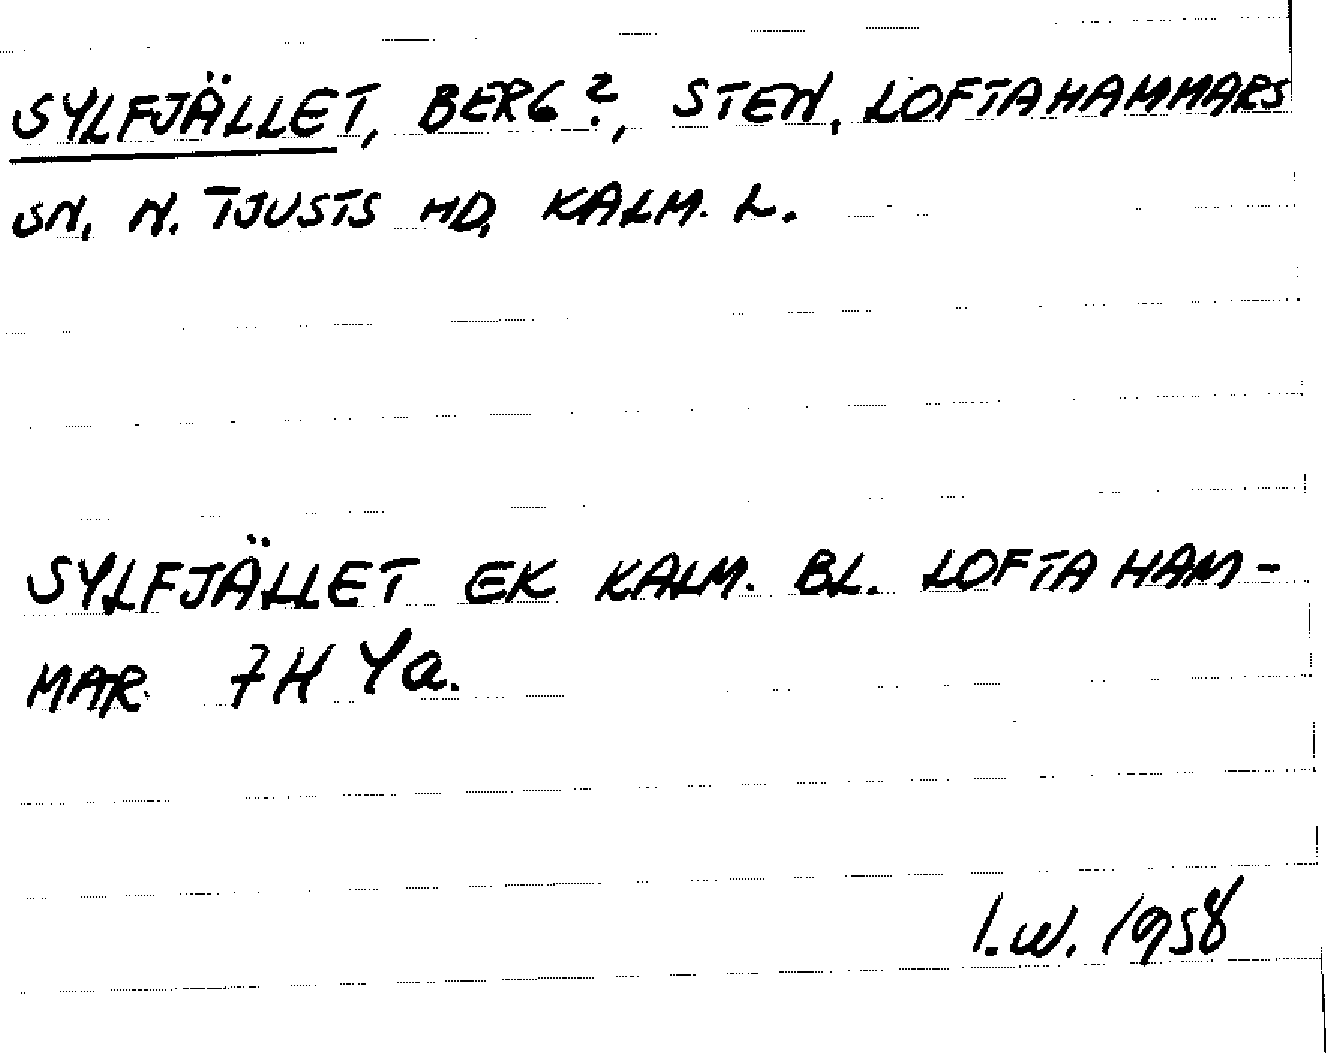 SYLFJÄLLET, BERG?, STEN, LOFTAHAMMARS
SN, N. TJUSTS HD, KALM. L.
SYLFJÄLLET EK KALM. BL. LOFTAHAM-
MAR 7H Ya.
I.W. 1958